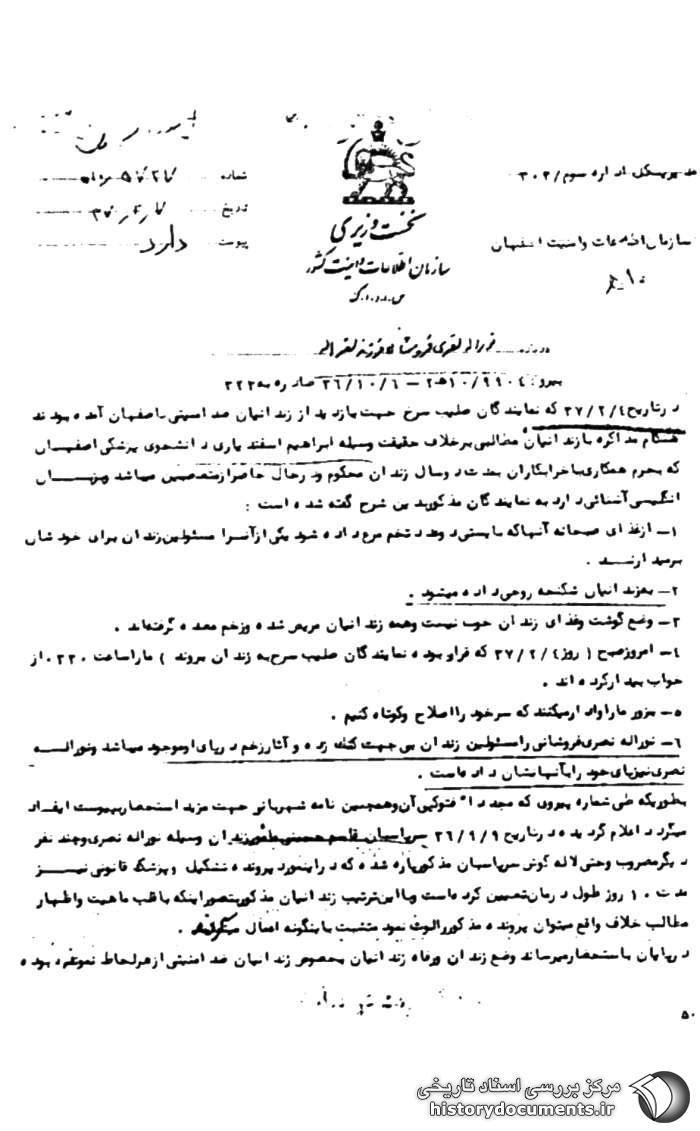 مدیریت کل اداره سوم/۳۰۲
سازمان اطلاعات و امنیت اصفهان
نخست وزیری
سازمان اطلاعات و امنیت کشور
س.ا.و.ا.ک
شماره
تاریخ
پیوست دارد
درباره
پیرو: ۲-۱۰/۹۹۰۴ه – ۳۶/۱۰/۶ صادره به ۳۲۲
در تاریخ ۳۷/۲/۴ که نمایندگان صلیب سرخ جهت بازدید از زندانیان ضد امنیتی باصفهان آمده بودند
هنگام مذاکره با زندانیان مطالبی برخلاف حقیقت وسیله ابراهیم اسفندیاری دانشجوی پزشکی اصفهان
که بجرم همکاری با خرابکاران بمدت دو سال زندان محکوم و در حال حاضر از متعصبین میباشد و بزبان
انگلیسی آشنائی دارد به نمایندگان مذکور بدین شرح گفته شده است :
۱- از غذای صبحانه آنها که بایستی دو عدد تخم مرغ داده شود یکی از آنرا مسئولین زندان برای خودشان
برمیدارند .
۲- به زندانیان شکنجه روحی داده میشود .
۳- وضع گوشت و غذای زندان خوب نیست و همه زندانیان مریض شده و زخم معده گرفته‌اند .
۴- امروز صبح ( روز ۳۷/۲/۴ که قرار بوده نمایندگان صلیب سرخ به زندان بروند ) ما را ساعت ۰۳۳۰ از
خواب بیدار کرده اند .
۵- بزور ما را وادار میکنند که سر خود را اصلاح و کوتاه کنیم .
۶- نوراله نصری فروشانی را مسئولین زندان بی جهت کتک زده و آثار زخم در پای او موجود میباشد و نوراله
نصری نیز پای خود را به آنها نشان داده است .
بطوریکه طی شماره پیروی که مجدداً فتوکپی آن و همچنین نامه شهربانی جهت مزید استحضار بپیوست ایفاد
میگردد اعلام گردیده در تاریخ ۳۶/۹/۹ سرپاسبان قاسم زندان وسیله نوراله نصری و چند نفر
دیگر مضروب و حتی لاله گوش سرپاسبان مذکور پاره شده که در اینمورد پرونده تشکیل و پزشک قانونی نیز
مدت ۱۰ روز طول درمان تعیین کرده است و با این ترتیب زندانیان مذکور بتصور اینکه با قلب ماهیت و اظهار
مطالب خلاف واقع میتوان پرونده مذکور را لوث نمود متشبث باینگونه اعمال میگردند .
در پایان باستحضار میرساند وضع زندان و رفاه زندانیان بخصوص زندانیان ضد امنیتی از هر لحاظ نمونه بوده
۵۰
مرکز بررسی اسناد تاریخی
historydocuments.ir